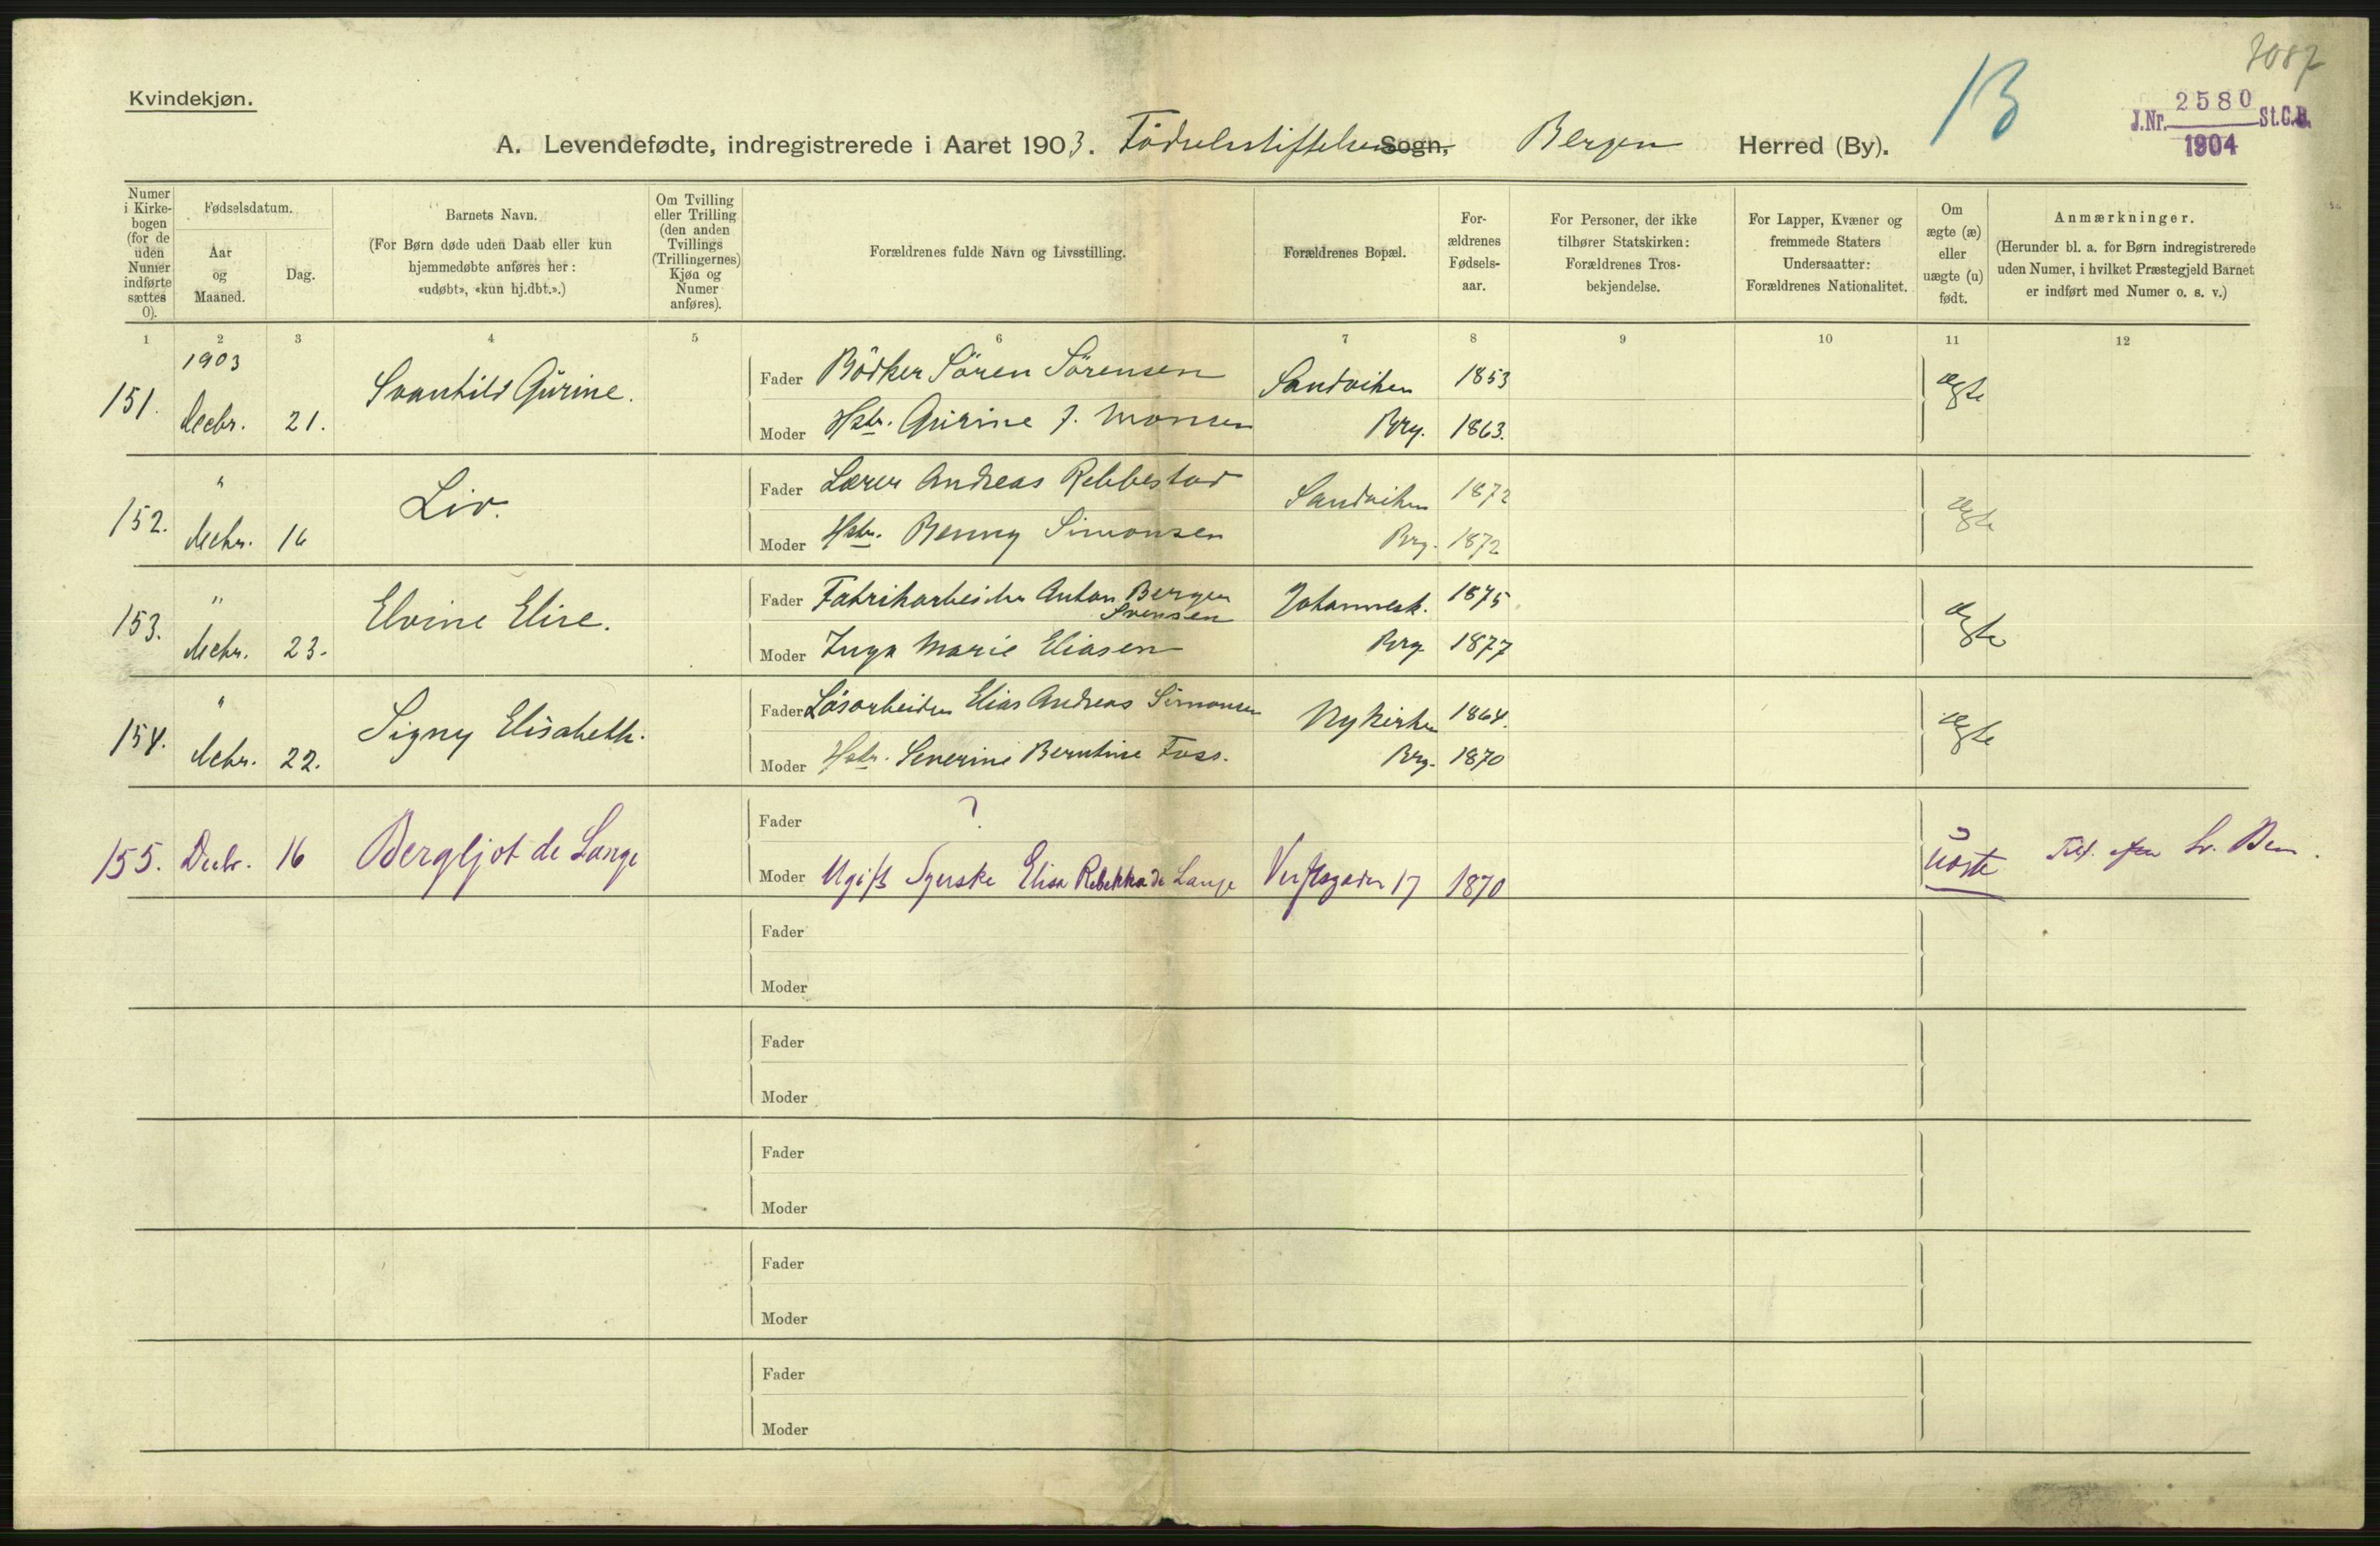 3087
Kvindekjøn.
13
J.Nr. 2580 St.C.B.
1904
A. Levendefødte, indregistrerede i Aaret 1903. Fødselsstiftelsen Sogn, Bergen Herred (By).
Numer i Kirkebogen (for de uden Numer indførte sættes 0).
Fødselsdatum.
Aar og Maaned.
Dag.
Barnets Navn.
(For Børn døde uden Daab eller kun hjemmedøbte anføres her: «udøbt», «kun hj.dbt.».)
Om Tvilling eller Trilling (den anden Tvillings (Trillingernes) Kjøn og Numer anføres).
Forældrenes fulde Navn og Livsstilling.
Forældrenes Bopæl.
Forældrenes Fødselsaar.
For Personer, der ikke tilhører Statskirken: Forældrenes Trosbekjendelse.
For Lapper, Kvæner og fremmede Staters Undersaatter: Forældrenes Nationalitet.
Om ægte (æ) eller uægte (u) født.
Anmærkninger.
(Herunder bl. a. for Børn indregistrerede uden Numer, i hvilket Præstegjeld Barnet er indført med Numer o. s. v.)
1 2 3 4 5 6 7 8 9 10 11 12
1903
151. Decbr. 21. Svanhild Gurine.
Fader Bödker Sören Sörensen Sandviken 1853 ægte
Moder Hstr. Gurine J. Monsen Brg. 1863.
152. " Decbr. 16 Liv.
Fader Lærer Andreas Rebbestad Sandviken 1872 ægte
Moder Hstr. Benny Simonsen Brg. 1872
153. " Decbr. 23. Elvine Elise.
Fader Fabrikarbeider Anton Bergen Svensen Johannesk. 1875 ægte
Moder Inga Marie Eliasen Brg. 1877
154. " Decbr. 22. Signy Elisabeth.
Fader Lösarbeider Elias Andreas Simonsen Nykirken 1864. ægte
Moder Hstr. Severine Berntine Foss. Brg. 1870
155. Decbr. 16 Bergljot de Lange
Fader ?
Moder Ugift Syerske Elisa Rebekka de Lange Verftsgaden 17 1870 uægte
Fader
Moder
Fader
Moder
Fader
Moder
Fader
Moder
Fader
Moder